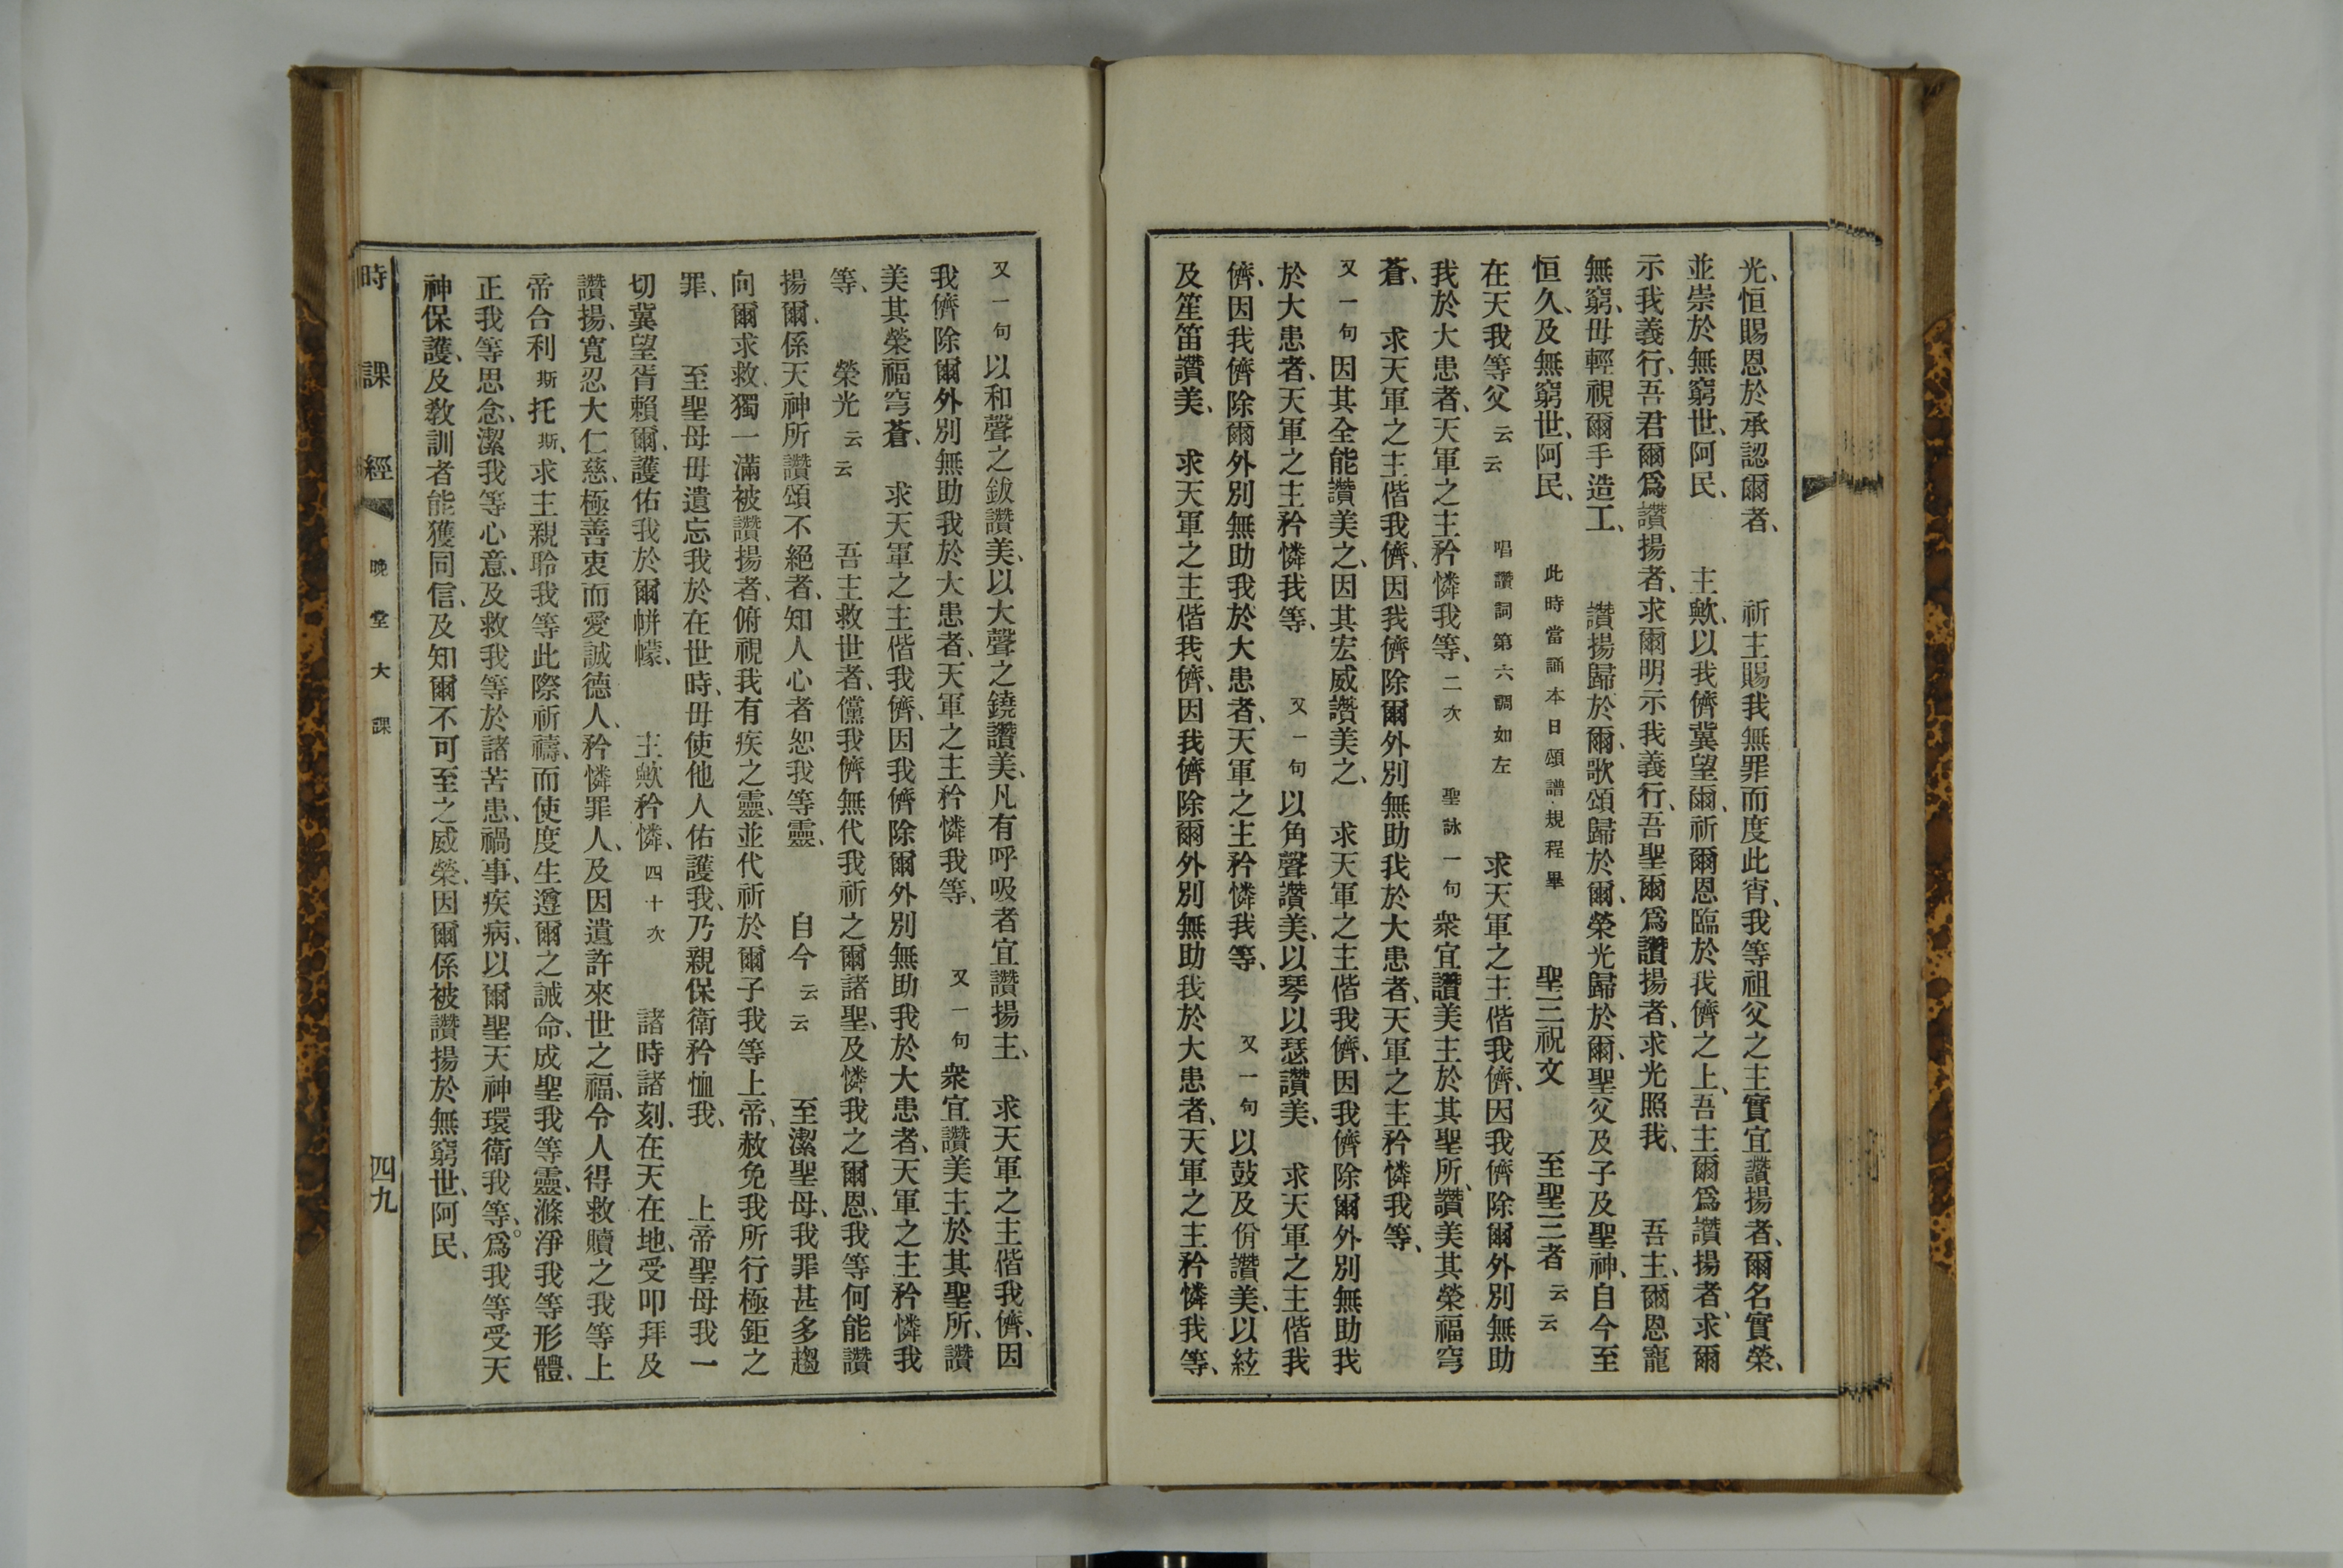 光、恒賜恩於承認爾者、 祈主賜我無罪而度此宵、我等祖父之主實宜讚揚者、爾名實榮、
並崇於無窮世、阿民、 主歟、以我儕冀望爾、祈爾恩臨於我儕之上、吾主爾爲讚揚者、求爾
示我義行、吾君爾爲讚揚者、求爾明示我義行、吾聖爾爲讚揚者、求光照我、 吾主、爾恩寵
無窮、毋輕視爾手造工、 讚揚歸於爾、歌頌歸於爾、榮光歸於爾、聖父及子及聖神、自今至
恒久、及無窮世、阿民、 此時當誦本日頌譜規程畢 聖三祝文 至聖三者 云云
在天我等父 云云 唱讚詞第六調如左 求天軍之主偕我儕、因我儕除爾外別無助
我於大患者、天軍之主矜憐我等、 二次 聖詠一句 衆宜讚美主於其聖所、讚美其榮福穹
蒼、 求天軍之主偕我儕、因我儕除爾外別無助我於大患者、天軍之主矜憐我等、
又一句 因其全能讚美之、因其宏威讚美之、 求天軍之主偕我儕、因我儕除爾外別無助我
於大患者、天軍之主矜憐我等、 又一句 以角聲讚美、以琴以瑟讚美、 求天軍之主偕我
儕、因我儕除爾外別無助我於大患者、天軍之主矜憐我等、 又一句 以鼓及佾讚美、以絃
及笙笛讚美、 求天軍之主偕我儕、因我儕除爾外別無助我於大患者、天軍之主矜憐我等、
又一句 以和聲之鈸讚美、以大聲之鐃讚美、凡有呼吸者宜讚揚主、 求天軍之主偕我儕、因
我儕除爾外別無助我於大患者、天軍之主矜憐我等、 又一句 衆宜讚美主於其聖所、讚
美其榮福穹蒼、 求天軍之主偕我儕、因我儕除爾外別無助我於大患者、天軍之主矜憐我
等、 榮光 云云 吾主救世者、儻我儕無代我祈之爾諸聖、及憐我之爾恩、我等何能讚
揚爾、係天神所讚頌不絕者、知人心者恕我等靈、 自今 云云 至潔聖母、我罪甚多趨
向爾求救、獨一滿被讚揚者、俯視我有疾之靈、並代祈於爾子我等上帝、赦免我所行極鉅之
罪、 至聖母毋遺忘我於在世時、毋使他人佑護我、乃親保衛矜恤我、 上帝聖母我一
切冀望胥賴爾、護佑我於爾帡幪、 主歟矜憐、 四十次 諸時諸刻、在天在地、受叩拜及
讚揚、寬忍大仁慈、極善衷而愛誠德人、矜憐罪人、及因遺許來世之福、令人得救贖之我等上
帝合利斯托斯、求主親聆我等此際祈禱、而使度生遵爾之誡命、成聖我等靈、滌淨我等形體、
正我等思念、潔我等心意、及救我等於諸苦患、禍事、疾病、以爾聖天神環衛我等、爲我等受天
神保護、及敎訓者能獲同信、及知爾不可至之威榮、因爾係被讚揚於無窮世、阿民、
時課經 晚堂大課 四九